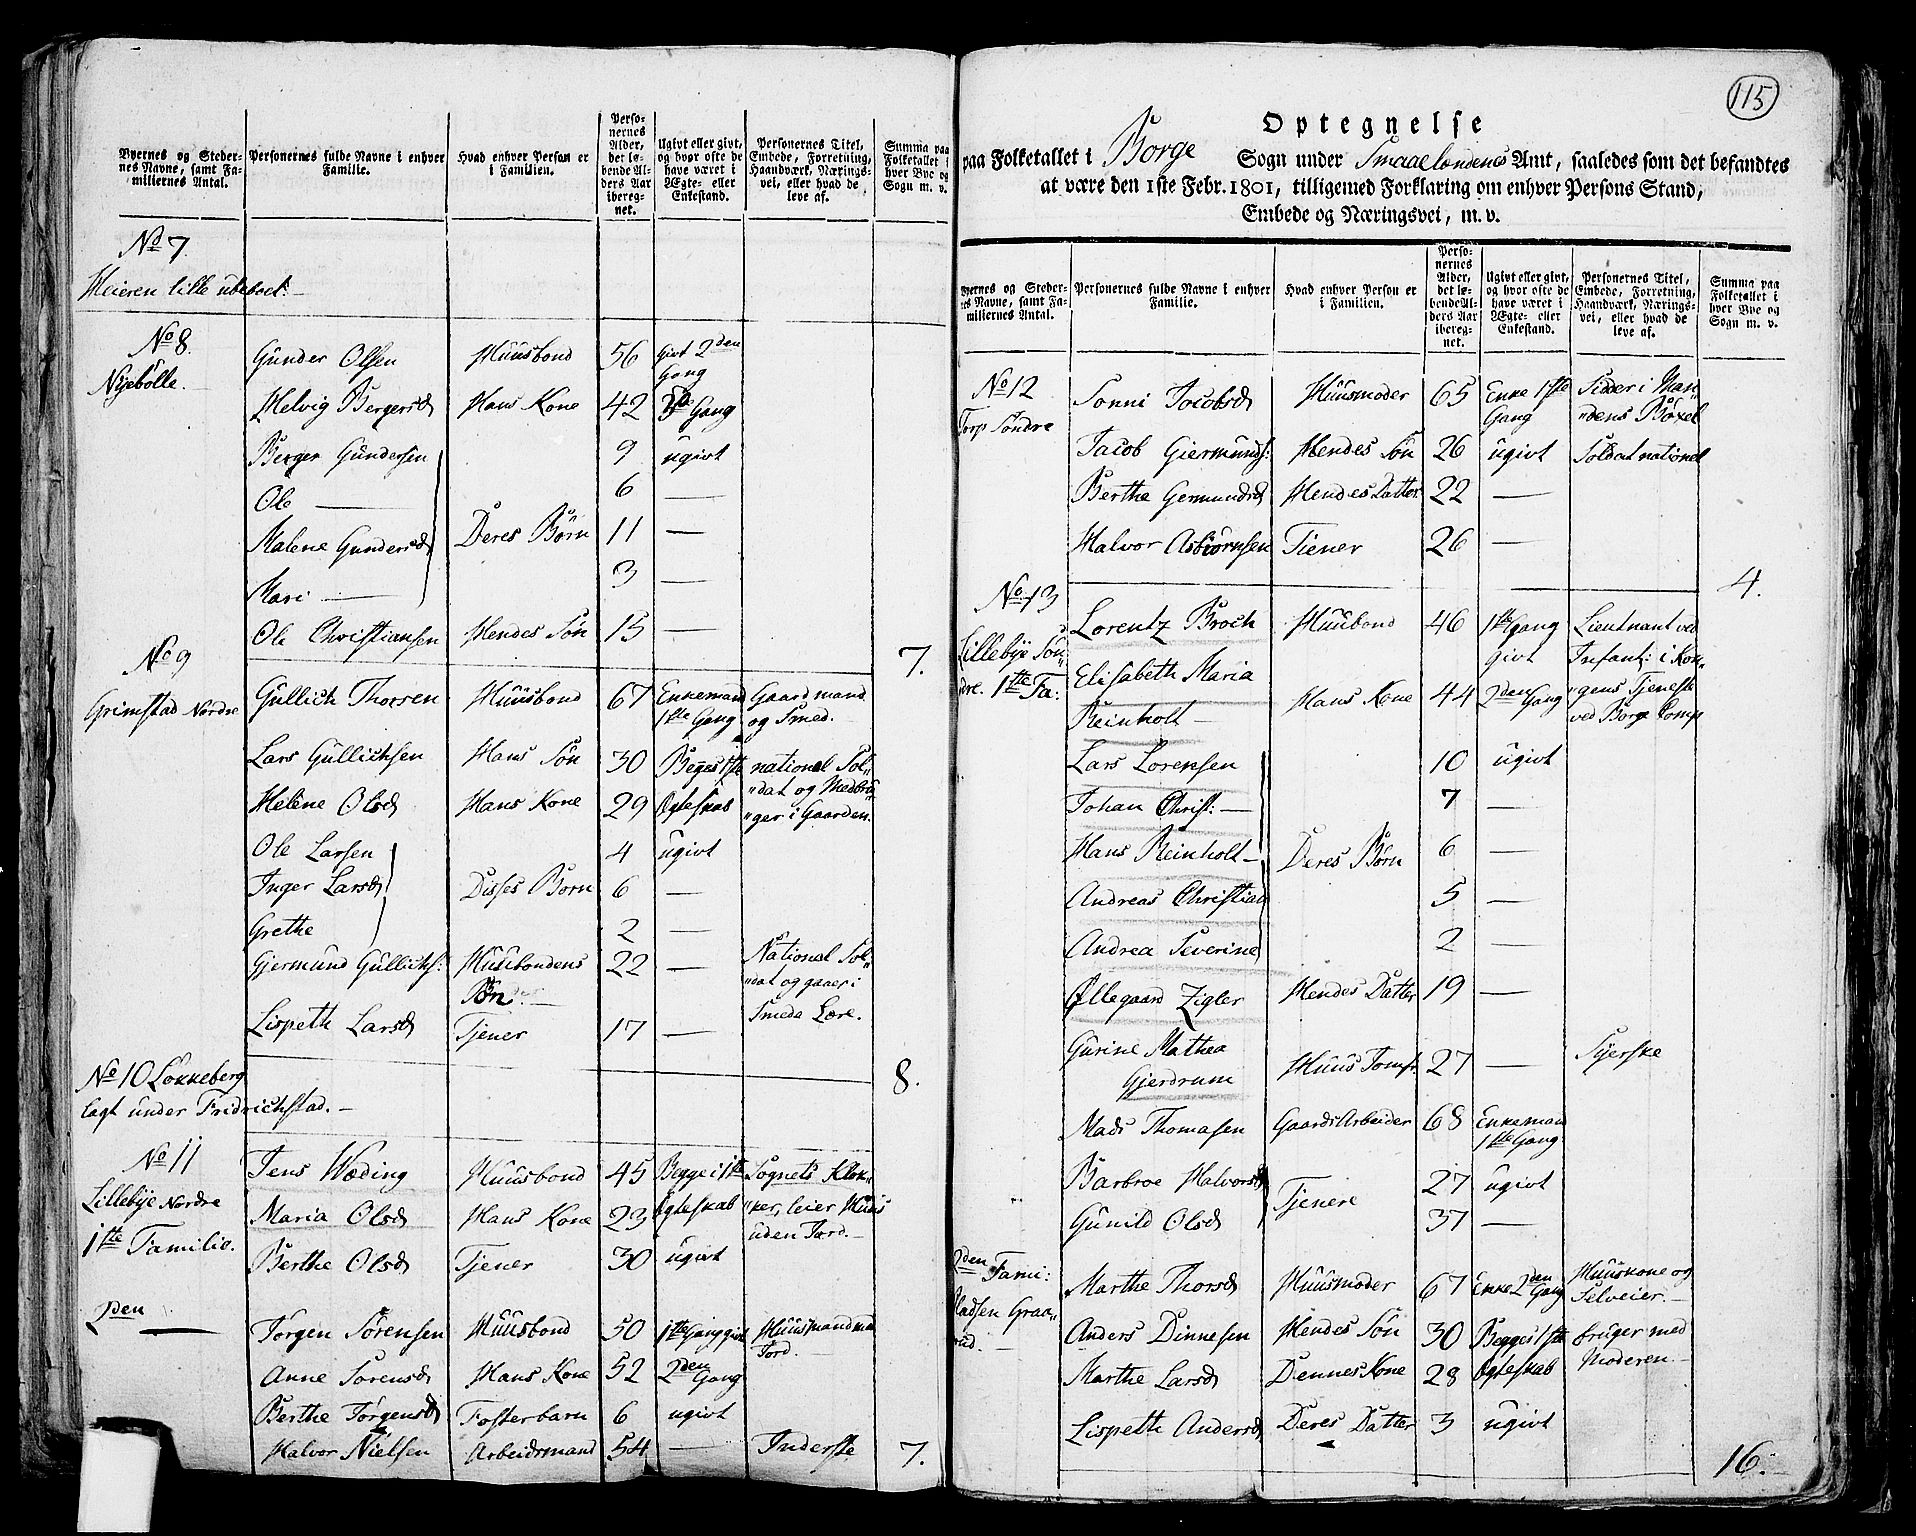 Byernes og Steder-
nes Navne, samt Fa-
miliernes Antal.
Personernes fulde Navne i enhver
Familie.
Hvad enhver Person er
i Familien.
Perso-
nernes
Alder,
det lø-
bende Al-
ders Aar
iberegnet.
Ugivt eller givt,
og hvor ofte de
have været i
Ægte- eller
Enkestand.
Personernes Titel,
Embede, Forretning,
Haandværk, Nærings-
vei, eller hvad de
leve af.
Summa paa
Folketallet i
hver Bye og
Sogn m. v.
No 7
Heieren lille ubeboet.
No 8.
Nyebølle.
Gunder Olsen Huusbond 56 Givt 2den Gang
Helvig Bergersd Hans Kone 42 Gang
Berger Gundersen 9 ugivt
Ole — 6 —
Malene Gundersd Deres Børn 11 —
Mari — 3 —
Ole Christiansen Hendes Søn 15 —
7.
No 9
Grimstad Nordre
Gullich Thorsen Huusbond 67 Enkemand 1ste Gang Gaardmand og Smed.
Lars Gullichsen Hans Søn 30 Begge i 1ste national Sol-
Helene Olsd Hans Kone 29 Ægteskab "dat og Medbru-
"ger i Gaarden.
Ole Larsen 4 ugivt
Inger Larsd Disses Børn 6 —
Grethe 2 —
Gjermund Gullichs: Huusbondens Søn. 22 — National Sol-
"dat og gaaer i
Smeda Lære.
Lispeth Larsd Tjener 17 —
8.
No 10 Lokkeberg
lagt under Fridrichstad. —
No 11
Lillebye Nordre
1ste Familie.
Jens Wæding Huusbond 45 Begge i 1ste Sognets Klok-
Maria Olsd Hans Kone 23 Ægteskab "ker, leier Huus
uden Jord. —
Berthe Olsd Tjener 30 ugivt
2den —
Jørgen Sørensen Huusbond 50 1ste Gang givt Huusmand med Jord. —
Anne Sørensd Hans Kone 52 2den Gang
Berthe Jørgensd Fosterbarn 6 ugivt
Halvor Nielsen Arbeidsmand 54 — Inderste
7.
115
Optegnelse
paa Folketallet i Borge Sogn under Smaalendenes Amt, saaledes som det befandtes
at være den 1ste Febr. 1801, tilligemed Forklaring om enhver Persons Stand,
Embede og Næringsvei, m. v.
Byernes og Steder-
nes Navne, samt Fa-
miliernes Antal.
Personernes fulde Navne i enhver
Familie.
Hvad enhver Person er
i Familien.
Perso-
nernes
Alder,
det lø-
bende Al-
ders Aar
iberegnet.
Ugivt eller givt,
og hvor ofte de
have været i
Ægte- eller
Enkestand.
Personernes Titel,
Embede, Forretning,
Haandværk, Nærings-
vei, eller hvad de
leve af.
Summa paa
Folketallet i
hver Bye og
Sogn m. v.
No 12
Torp Søndre
Sonni Jocobsd Huusmoder 65 Enke 1ste Gang Sidder i Man-
"dens Boxel
Jacob Giermunds: Hendes Søn 26 ugivt Soldat national
Berthe Germundsd Hendes Datter 22 —
Halvor Asbiørnsen Tiener 26 —
4.
No 13
Lillebye Søn-
dre. 1ste Fa:
Lorentz Broch Huusbond 46 1ste Gang givt Lieutnant ved
Infant: i Kon-
Elisabeth Maria
Reinholt — Hans Kone 44 2den Gang "gens Tjeneste
ved Borge Comp
Lars Lorensen 10 ugivt
Johan Christ: — 7 —
Hans Reinholt — Deres Børn 6 —
Andreas Christian 5 —
Andrea Severine 2 —
Øllegaard Zigler Hendes Datter 19 —
Gurine Mathea
Gjerdrum Huus Jomfr. 27 — Syerske
Mads Thomasen Gaards Arbeider 68 Enkeman 1ste Gang
Barbroe Halvorsd Tjenere 27 ugivt
Gunild Olsd 37 —
2den Fami:
Pladsen Graa-
Marthe Thorsd Huusmoder 67 Enke 2den Gang Huuskone og
Selveier. —
Anders Dinnesen Hendes Søn 30 Begge i 1ste bruger med
Marthe Larsd Dennes Kone 28 Ægteskab Moderen. —
Lispeth Andersd Deres Datter 3 ugivt
16.